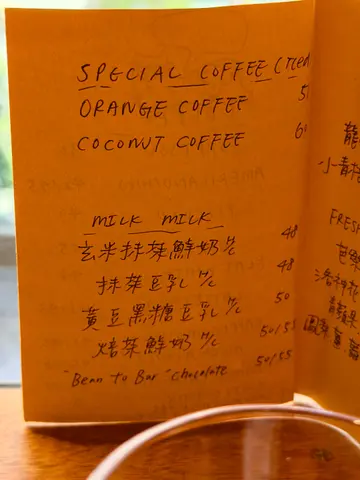 SPECIAL COFFEE (Iced
ORANGE COFFEE 5
COCONUT COFFEE 6
MILK MILK
玄米抹茶鮮奶 H/C 48
抹茶豆乳 H/C 48
黃豆黑糖豆乳 H/C 50
焙茶鮮奶 H/C 50/55
"Bean to Bar" chocolate 50/55
龍
小青柑
FRESH
芭
洛神花
青蘋果